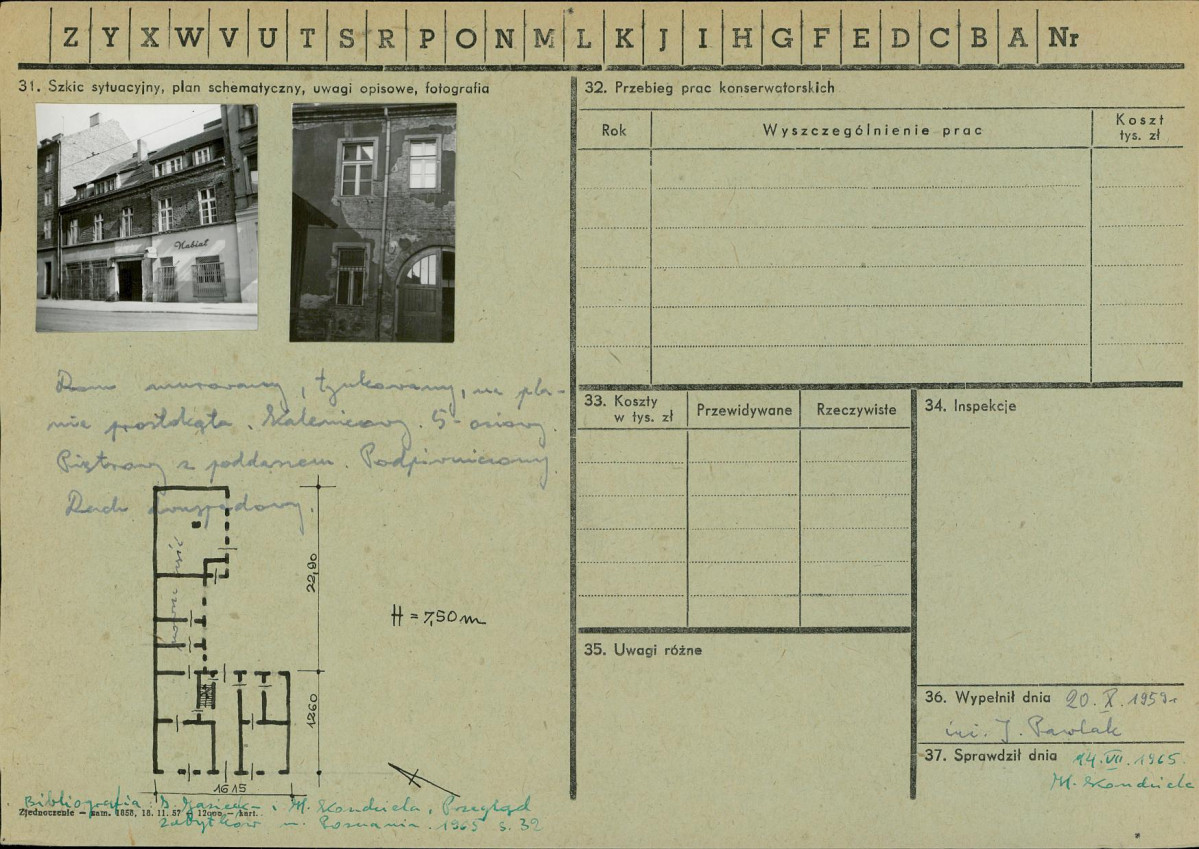 Z Y X W V U T S R P O N M L K J I H G F E D C B A Nr
31. Szkic sytuacyjny, plan schematyczny, uwagi opisowe, fotografia
Nabiał
Dom murowany, tynkowany, na pla-
nie prostokąta. Kalenicowy. 5-osiowy.
Piętrowy z poddaszem. Podpiwniczony.
Dach dwuspadowy.
22,90
H = 7,50 m
1260
1615
Bibliografia: i M. Kondziela, Przegląd
zabytków m. Poznania. 1965 s. 32
Zjednoczenie — zam. 1858, 18. 11. 57 — 12000 — kart.
32. Przebieg prac konserwatorskich
Rok
Wyszczególnienie prac
Koszt
tys. zł
33. Koszty
w tys. zł
Przewidywane
Rzeczywiste
34. Inspekcje
35. Uwagi różne
36. Wypełnił dnia 20. X. 1959 r
inż. J. Pawlak
37. Sprawdził dnia 14. VII. 1965.